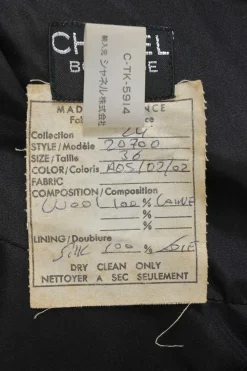 CHANEL
BOUTIQUE
C-TK-5914
輸入元 シャネル株式会社
MADE FRANCE
Collection
STYLE/Modèle 20700
SIZE/Taille 36
COLOR/Coloris A05/02/02
FABRIC
COMPOSITION/Composition
WOOL 100 % LAINE
%
%
LINING/Doublure
Silk 100 % SOIE
DRY CLEAN ONLY
NETTOYER A SEC SEULEMENT